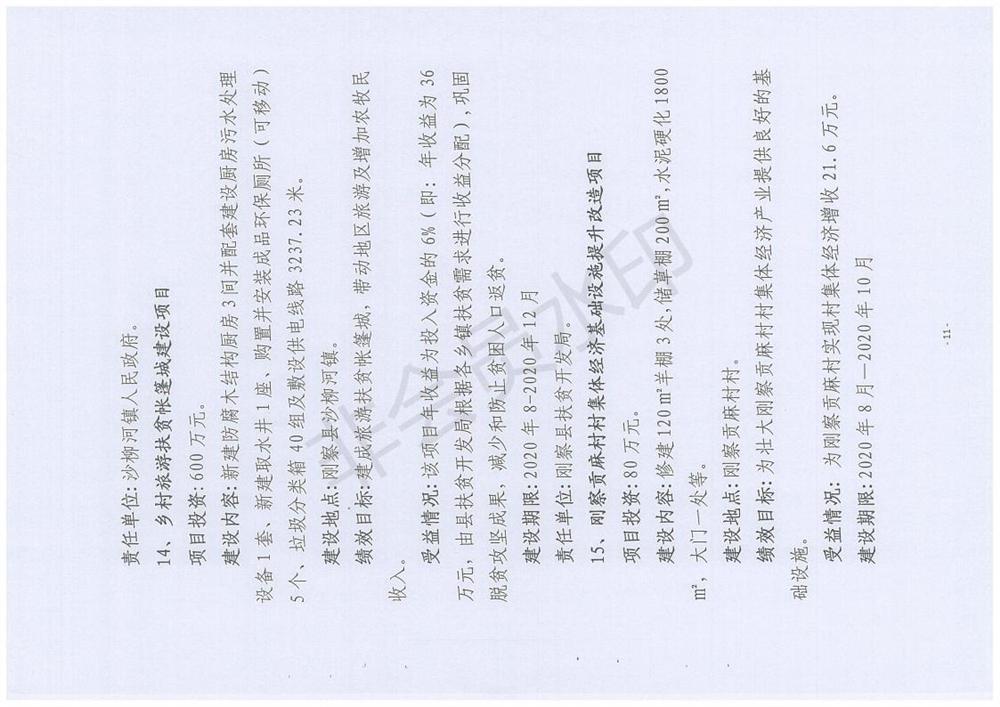 责任单位:沙柳河镇人民政府。
14、乡村旅游扶贫帐篷城建设项目
项目投资:600 万元。
建设内容:新建防腐木结构厨房 3 间并配套建设厨房污水处理
设备 1 套、新建取水井 1 座、购置并安装成品环保厕所（可移动）
5 个、垃圾分类箱 40 组及敷设供电线路 3237.23 米。
建设地点:刚察县沙柳河镇。
绩效目标:建成旅游扶贫帐篷城,带动地区旅游及增加农牧民
收入。
受益情况:该项目年收益为投入资金的 6%（即：年收益为 36
万元，由县扶贫开发局根据各乡镇扶贫需求进行收益分配）,巩固
脱贫攻坚成果，减少和防止贫困人口返贫。
建设期限:2020 年 8-2020 年 12 月
责任单位:刚察县扶贫开发局。
15、刚察贡麻村村集体经济基础设施提升改造项目
项目投资:80 万元。
建设内容:修建 120 ㎡羊棚 3 处,储草棚 200 ㎡,水泥硬化 1800
㎡，大门一处等。
建设地点:刚察贡麻村村。
绩效目标:为壮大刚察贡麻村村集体经济产业提供良好的基
础设施。
受益情况：为刚察贡麻村实现村集体经济增收 21.6 万元。
建设期限:2020 年 8 月—2020 年 10 月
-11-
非会员水印